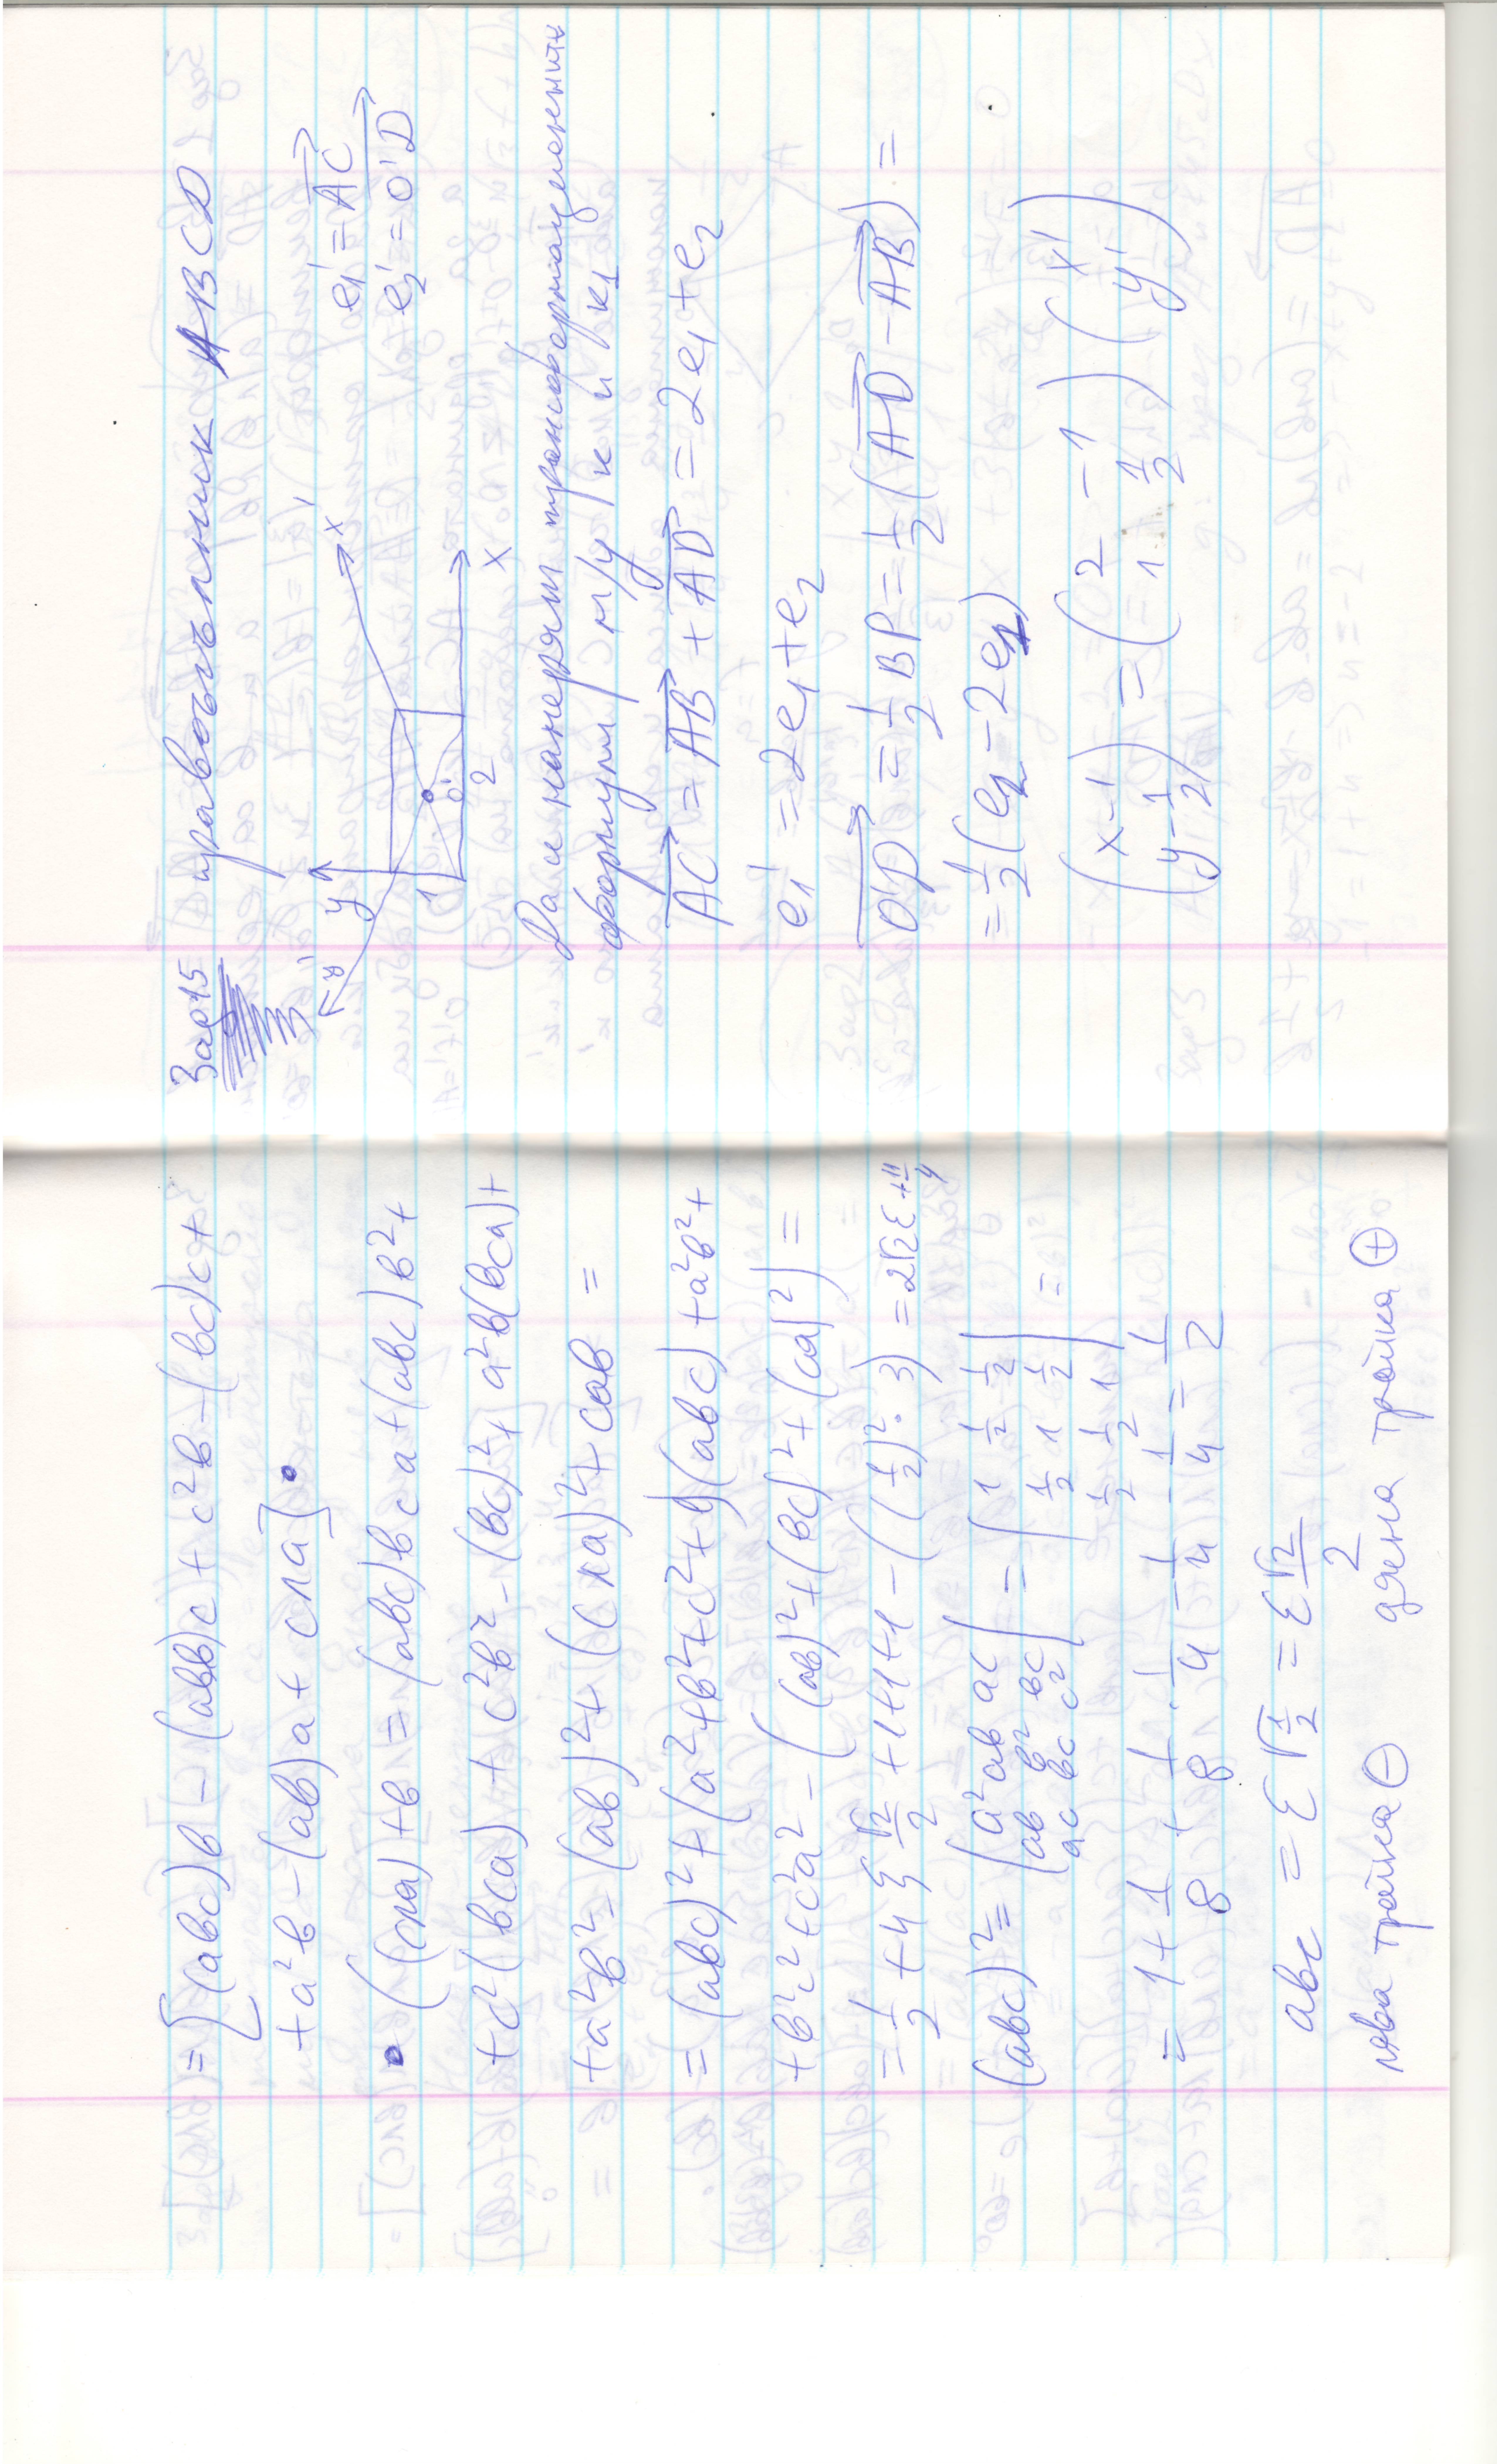 = [(abc)b - (abb)c + c²b - (bc)c +
+ a²b - (ab)a + cла] •
• ((cла) + b = (abc)bca + (abc)b² +
+ c²(bca) + c²b² - (bc)² + a²b(bca) +
+ a²b² - (ab)² + (cла)² + cab =
= (abc)² + (a² + b² + c² + 1)(abc) + a²b² +
+ b²c² + c²a² - ((ab)² + (bc)² + (ca)²) =
= 1/2 + 4ξ √2/2 + 1+1+1 - ((1/2)². 3) = 2√2ε + 11/4
(abc)² = | a² ab ac | = | 1 1/2 1/2 | =
| ab b² bc | | 1/2 1 1/2 |
| ac bc c² | | 1/2 1/2 1 |
= 1 + 1/8 + 1/8 - 1/4 - 1/4 - 1/4 = 1/2
abc = ε √1/2 = ε √2/2
лява тройка ⊖ дясна тройка ⊕
Зад 15 правоъгълник ABCD
y' y x' e₁' = AC
e₂' = O'D
1 O' 2 x
Да се намерят трансформационните
формули м/у к и к₁
AC = AB + AD = 2e₁ + e₂
e₁' = 2e₁ + e₂
O'D = 1/2 BD = 1/2 (AD - AB) =
= 1/2 (e₂ - 2e₁)
(x-1) = (2 -1) (x')
(y-1/2) (1 1/2) (y')